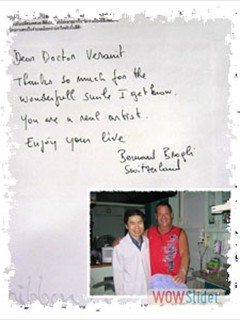 Dear Doctor Veranit
Thanks so much for the
wonderfull smile I get know.
You are a real artist.
Enjoy your live
Bernard
Switzerland
WOWSlider